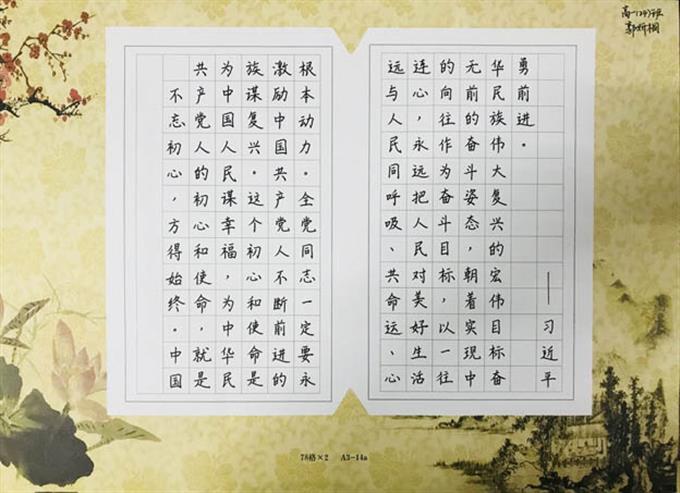 高一(24)班
不忘初心，方得始终。中国
共产党人的初心和使命，就是
为中国人民谋幸福，为中华民
族谋复兴。这个初心和使命是
激励中国共产党人不断前进的
根本动力。全党同志一定要永
远与人民同呼吸、共命运、心
连心，永远把人民对美好生活
的向往作为奋斗目标，以一往
无前的奋斗姿态，朝着实现中
华民族伟大复兴的宏伟目标奋
勇前进。
——习近平
78格×2 A3-14a